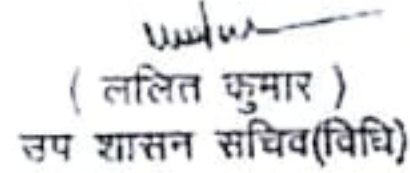 ( ललित कुमार )
उप शासन सचिव(विधि)